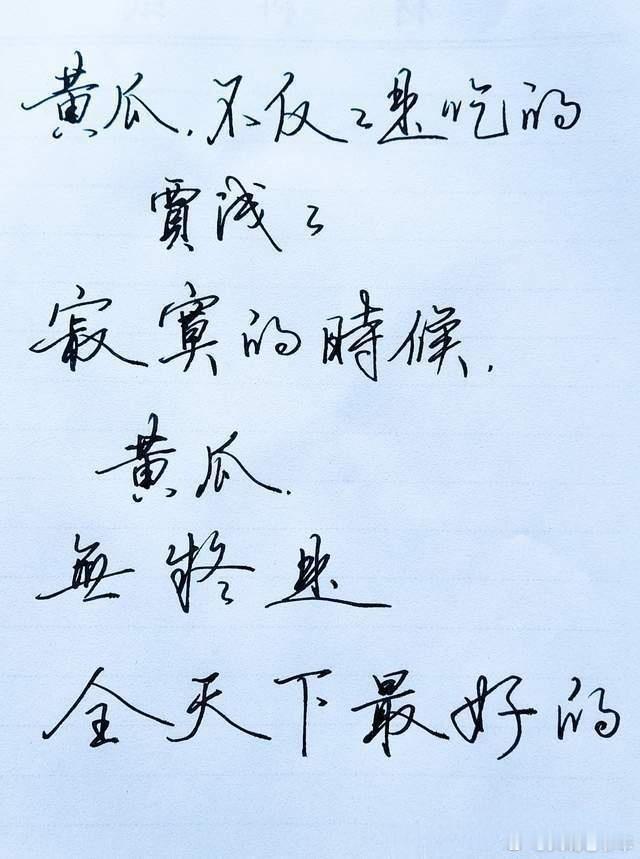 黄瓜,不仅仅是吃的
賈浅浅
寂寞的時候,
黄瓜,
無疑是
全天下最好的